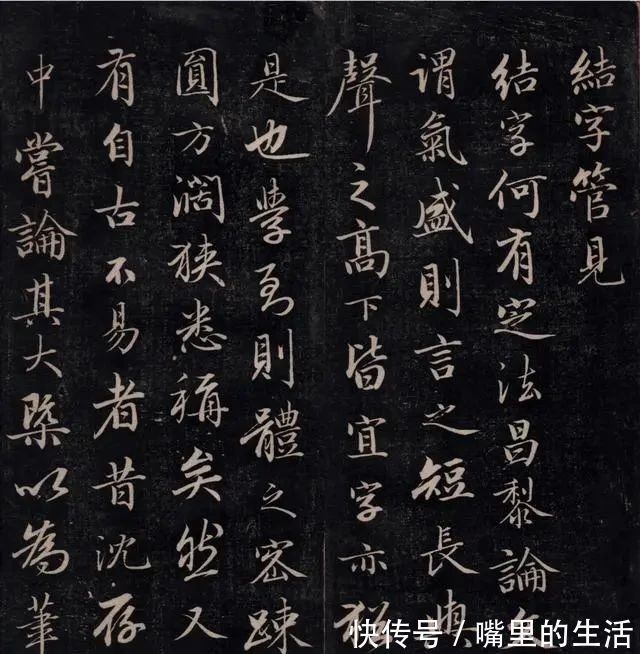 結字管見
結字何有定法昌黎論文
謂氣盛則言之短長與
聲之高下皆宜字亦猶
是也學到則體之密疎
圓方濶狹悉稱矣然又
有自古不易者昔沈存
中嘗論其大槩以為筆
快传号 / 嘴里的生活